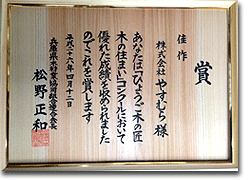 賞
佳作
株式会社 やすむら 様
あなたは「ひょうご木の匠
木の住まいコンクールにおいて
優れた成績を収められました
のでこれを賞します
平成二十六年四月十二日
兵庫県木材業協同組合連合会会長
松野正和